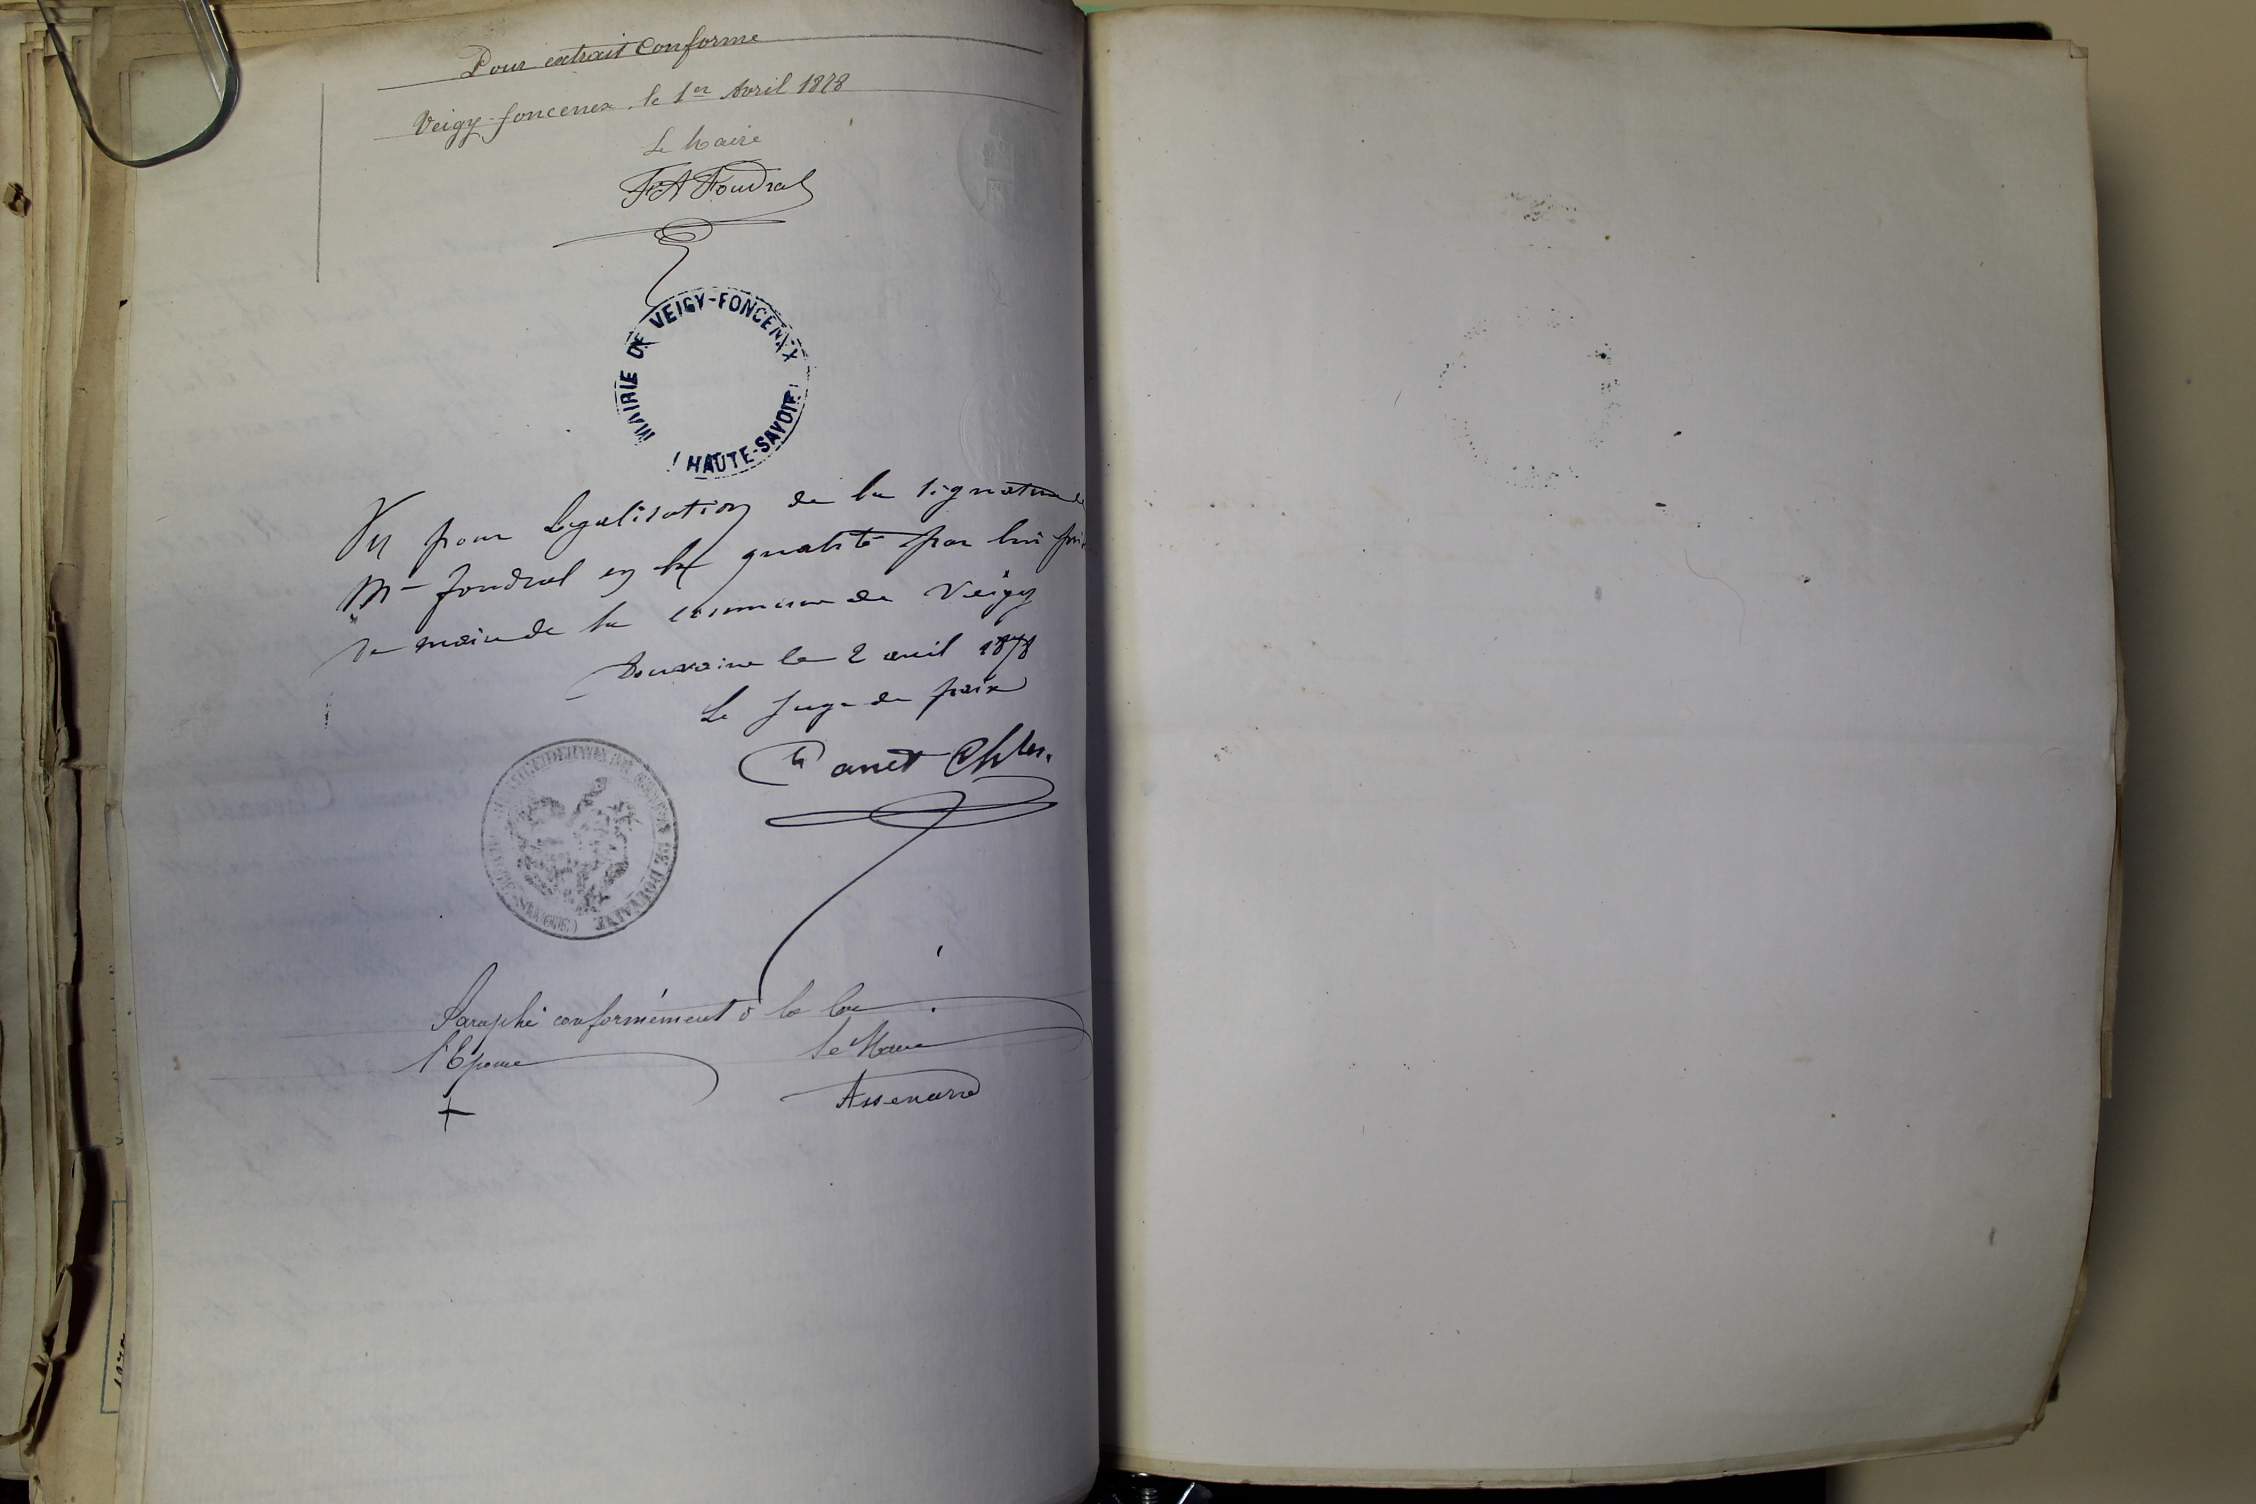 Pour extrait Conforme
Veigy-foncenex, le 1er Avril 1878
Le Maire
MAIRIE DE VEIGY-FONCENEX
(HAUTE-SAVOIE)
Vu pour Légalisation de la signature de
Mr foudral en la qualité par lui prise
de maire de la commune de Veigy
Douvaine le 2 avril 1878
Le Juge de paix
DE DOUVAINE
Paraphé conformément à la loi
l'Epouse
le Maire
+